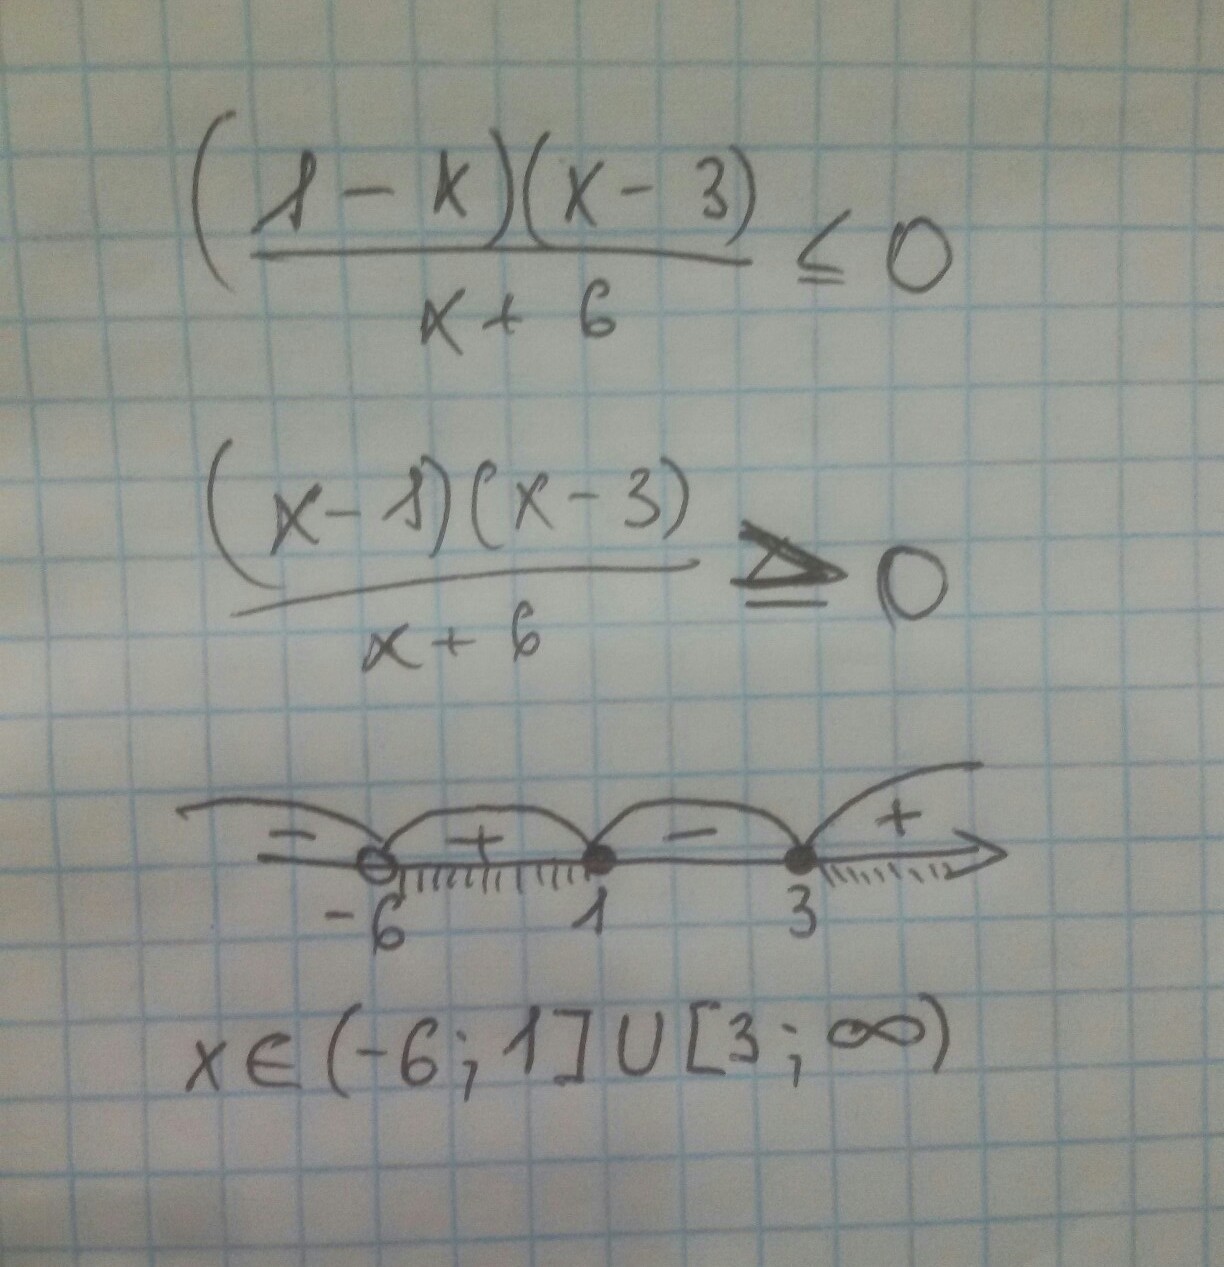 (1 - x)(x - 3)
x + 6
≤ 0
(x - 1)(x - 3)
x + 6
≥ 0
- + - +
-6 1 3
x ∈ (-6; 1] ∪ [3; ∞)